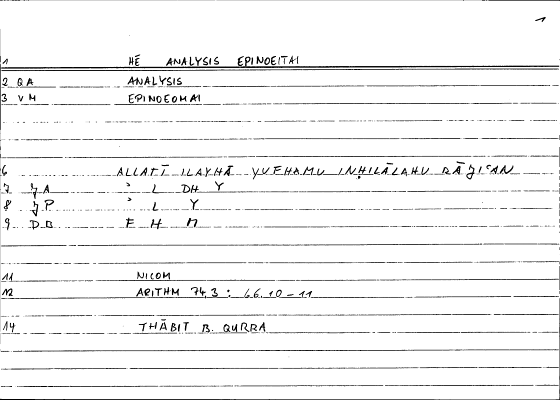 1
1 HĒ ANALYSIS EPINOEITAI
2 QA ANALYSIS
3 VM EPINOEOMAI
6 ALLATĪ ILAYHĀ YUFHAMU INḤILĀLAHU RĀǦIʿAN
7 ǦA ʾ L DH Y
8 ǦP ʾ L Y
9 DB F H M
11 NICOM
12 ARITHM 74,3 : 66.10-11
14 THĀBIT B. QURRA